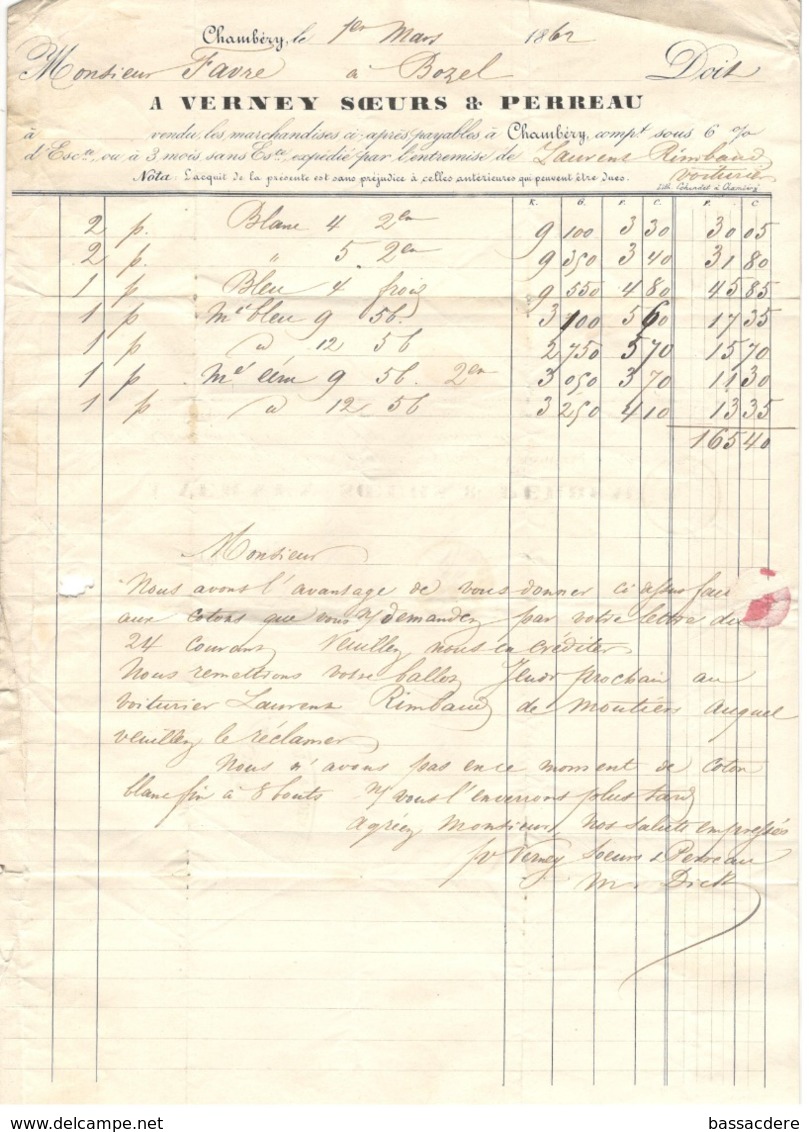 Chambéry, le 1er Mars 1862
Monsieur Favre à Bozel Doit
A VERNEY SŒURS & PERREAU
à vendu, les marchandises ci-après payables à Chambéry, compt. sous 6 %
d'Escte, ou à 3 mois sans Escte, expédié par l'entremise de Laurent Rimbaud
voiturier
Nota: L'acquit de la présente est sans préjudice à celles antérieures qui peuvent être dues.
Lith. à Chambéry
K. G. F. C. F. C
2 p. Blanc 4 2en 9 100 3 30 30 05
2 p. " 5 2en 9 350 3 40 31 80
1 p Bleu 4 9 550 4 80 45 85
1 p Mé bleu 9 5b. 3 100 5 60 17 35
1 p d 12 5b 2 750 5 70 15 70
1 p Mé 9 5b. 2en 3 050 3 70 11 30
1 p d 12 5b 3 250 4 10 13 35
165 40
Monsieur
Nous avons l'avantage de vous donner ci dessus fact
aux cotons que vous demandez par votre lettre du
24 courant Veuillez nous en créditer
Nous remettrons votre ballot Jeudi prochain au
voiturier Laurent Rimbaud de moutiers auquel
veuillez le réclamer
Nous n'avons pas en ce moment de coton
blanc fin à 8 bouts ns vous l'enverrons plus tard
agréez Monsieur, nos saluts empressés
pr Verney Soeurs & Perreau
M. Dick
delcampe.net
bassacdere